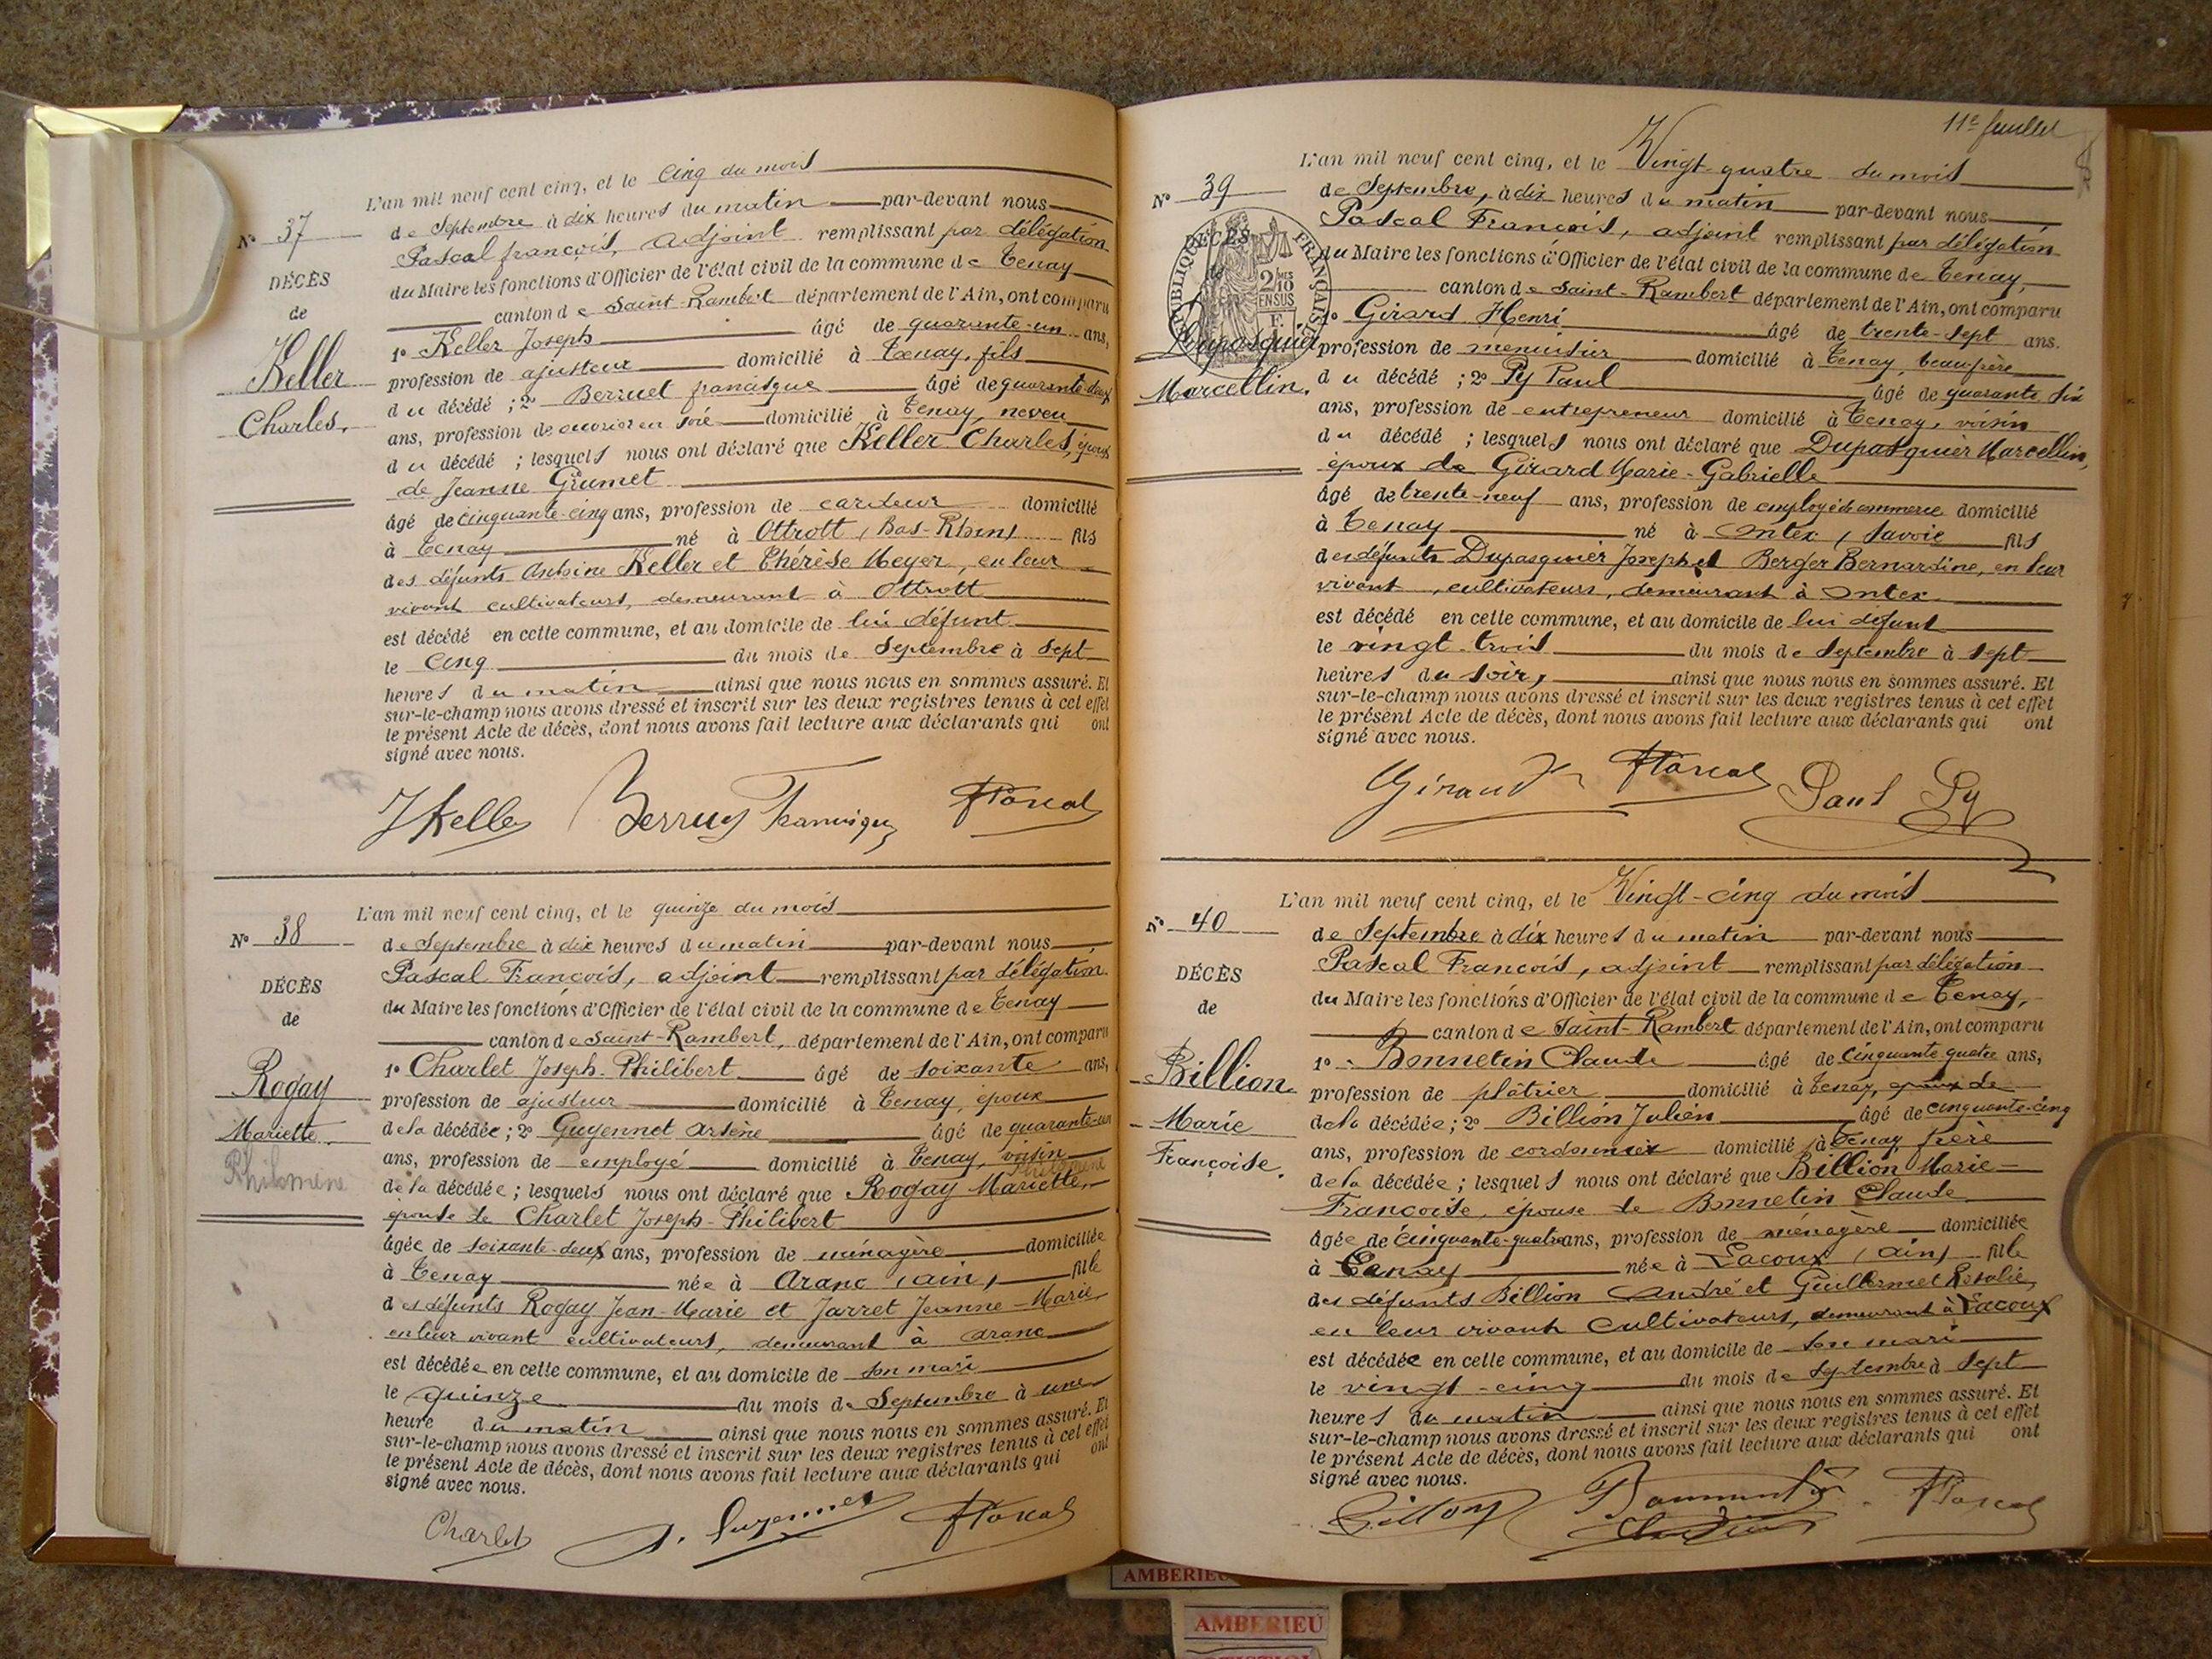 L'an mil neuf cent cinq, et le cinq du mois
Nº 37
de Septembre à dix heures du matin par-devant nous
Pascal françois, adjoint remplissant par délégation
DÉCÈS
du Maire les fonctions d'Officier de l'état civil de la commune de Tenay
de
canton de Saint-Rambert département de l'Ain, ont comparu
1º Keller Joseph âgé de quarante-un ans,
Keller
profession de ajusteur domicilié à Tenay, fils
Charles.
du décédé ; 2º Berruet françisque âgé de quarante-deux
ans, profession de ouvrier en soie domicilié à Tenay, neveu
du décédé ; lesquels nous ont déclaré que Keller Charles, époux
de Jeanne Grumet
âgé de cinquante-cinq ans, profession de cardeur domicilié
à Tenay né à Ottrott (Bas-Rhin) fils
des défunts Antoine Keller et Thérèse Meyer, en leur
vivant cultivateurs, demeurant à Ottrott
est décédé en cette commune, et au domicile de lui défunt
le cinq du mois de Septembre à sept
heures du matin ainsi que nous nous en sommes assuré. Et
sur-le-champ nous avons dressé et inscrit sur les deux registres tenus à cet effet
le présent Acte de décès, dont nous avons fait lecture aux déclarants qui ont
signé avec nous.
J Keller Berruet Francisque FPascal
L'an mil neuf cent cinq, et le quinze du mois
Nº 38
de Septembre à dix heures du matin par-devant nous
Pascal François, adjoint remplissant par délégation
DÉCÈS
du Maire les fonctions d'Officier de l'état civil de la commune de Tenay
de
canton de Saint-Rambert, département de l'Ain, ont comparu
1º Charlet Joseph-Philibert âgé de soixante ans,
Rogay
profession de ajusteur domicilié à Tenay, époux
Mariette
de la décédée ; 2º Guyennet Arsène âgé de quarante-un
ans, profession de employé domicilié à Tenay, voisin
Philomène
Philomène
de la décédée ; lesquels nous ont déclaré que Rogay Mariette,
épouse de Charlet Joseph-Philibert
âgée de soixante-deux ans, profession de ménagère domiciliée
à Tenay née à Aranc (Ain) fille
des défunts Rogay Jean-Marie et Jarret Jeanne-Marie,
en leur vivant cultivateurs, demeurant à Aranc
est décédée en cette commune, et au domicile de son mari
le quinze du mois de Septembre à une
heure du matin ainsi que nous nous en sommes assuré. Et
sur-le-champ nous avons dressé et inscrit sur les deux registres tenus à cet effet
le présent Acte de décès, dont nous avons fait lecture aux déclarants qui ont
signé avec nous.
Charlet A. Guyennet FPascal
11e feuillet
L'an mil neuf cent cinq, et le Vingt-quatre du mois
Nº 39
de Septembre, à dix heures du matin par-devant nous
Pascal François, adjoint remplissant par délégation
DÉCÈS
de
RÉPUBLIQUE FRANÇAISE
2 MES
10
EN SUS
F.
du Maire les fonctions d'Officier de l'état civil de la commune de Tenay,
canton de Saint-Rambert département de l'Ain, ont comparu
1º Girard Henri âgé de trente-sept ans.
Dupasquier
profession de menuisier domicilié à Tenay, beau-frère
Marcellin.
du décédé ; 2º Py Paul âgé de quarante six
ans, profession de entrepreneur domicilié à Tenay, voisin
du décédé ; lesquels nous ont déclaré que Dupasquier Marcellin,
époux de Girard Marie-Gabrielle
âgé de trente-neuf ans, profession de employé de commerce domicilié
à Tenay né à Ontex, (Savoie fils
des défunts Dupasquier Joseph et Berger Bernardine, en leur
vivant, cultivateurs, demeurant à Ontex
est décédé en cette commune, et au domicile de lui défunt
le vingt-trois du mois de Septembre à sept
heures du soir, ainsi que nous nous en sommes assuré. Et
sur-le-champ nous avons dressé et inscrit sur les deux registres tenus à cet effet
le présent Acte de décès, dont nous avons fait lecture aux déclarants qui ont
signé avec nous.
Girard H FPascal Paul Py
L'an mil neuf cent cinq, et le Vingt-cinq du mois
Nº 40
de Septembre à dix heures du matin par-devant nous
Pascal François, adjoint remplissant par délégation
DÉCÈS
du Maire les fonctions d'Officier de l'état civil de la commune de Tenay,
de
canton de Saint-Rambert département de l'Ain, ont comparu
1º Bonnetin Claude âgé de cinquante quatre ans,
Billion
profession de plâtrier domicilié à Tenay, époux de
Marie
de la décédée ; 2º Billion Julien âgé de cinquante-cinq
Françoise.
ans, profession de cordonnier domicilié à Tenay frère
de la décédée ; lesquels nous ont déclaré que Billion Marie-
Françoise, épouse de Bonnetin Claude
âgée de cinquante-quatre ans, profession de ménagère domiciliée
à Tenay née à Lacoux (Ain) fille
des défunts Billion André et Guillermet Rosalie,
en leur vivant cultivateurs, demeurant à Lacoux
est décédée en cette commune, et au domicile de son mari
le vingt-cinq du mois de Septembre à sept
heures du matin ainsi que nous nous en sommes assuré. Et
sur-le-champ nous avons dressé et inscrit sur les deux registres tenus à cet effet
le présent Acte de décès, dont nous avons fait lecture aux déclarants qui ont
signé avec nous.
Billion Bonnentin FPascal
AMBERIEU
AMBERIEU